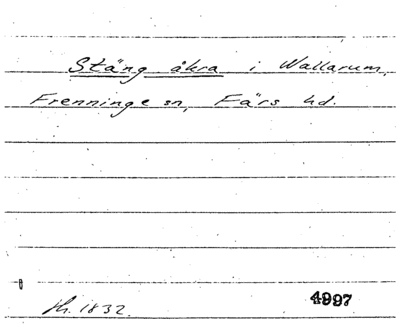 Stäng åkra i Wallarum,
Frenninge sn, Färs hd.
1832.
4997